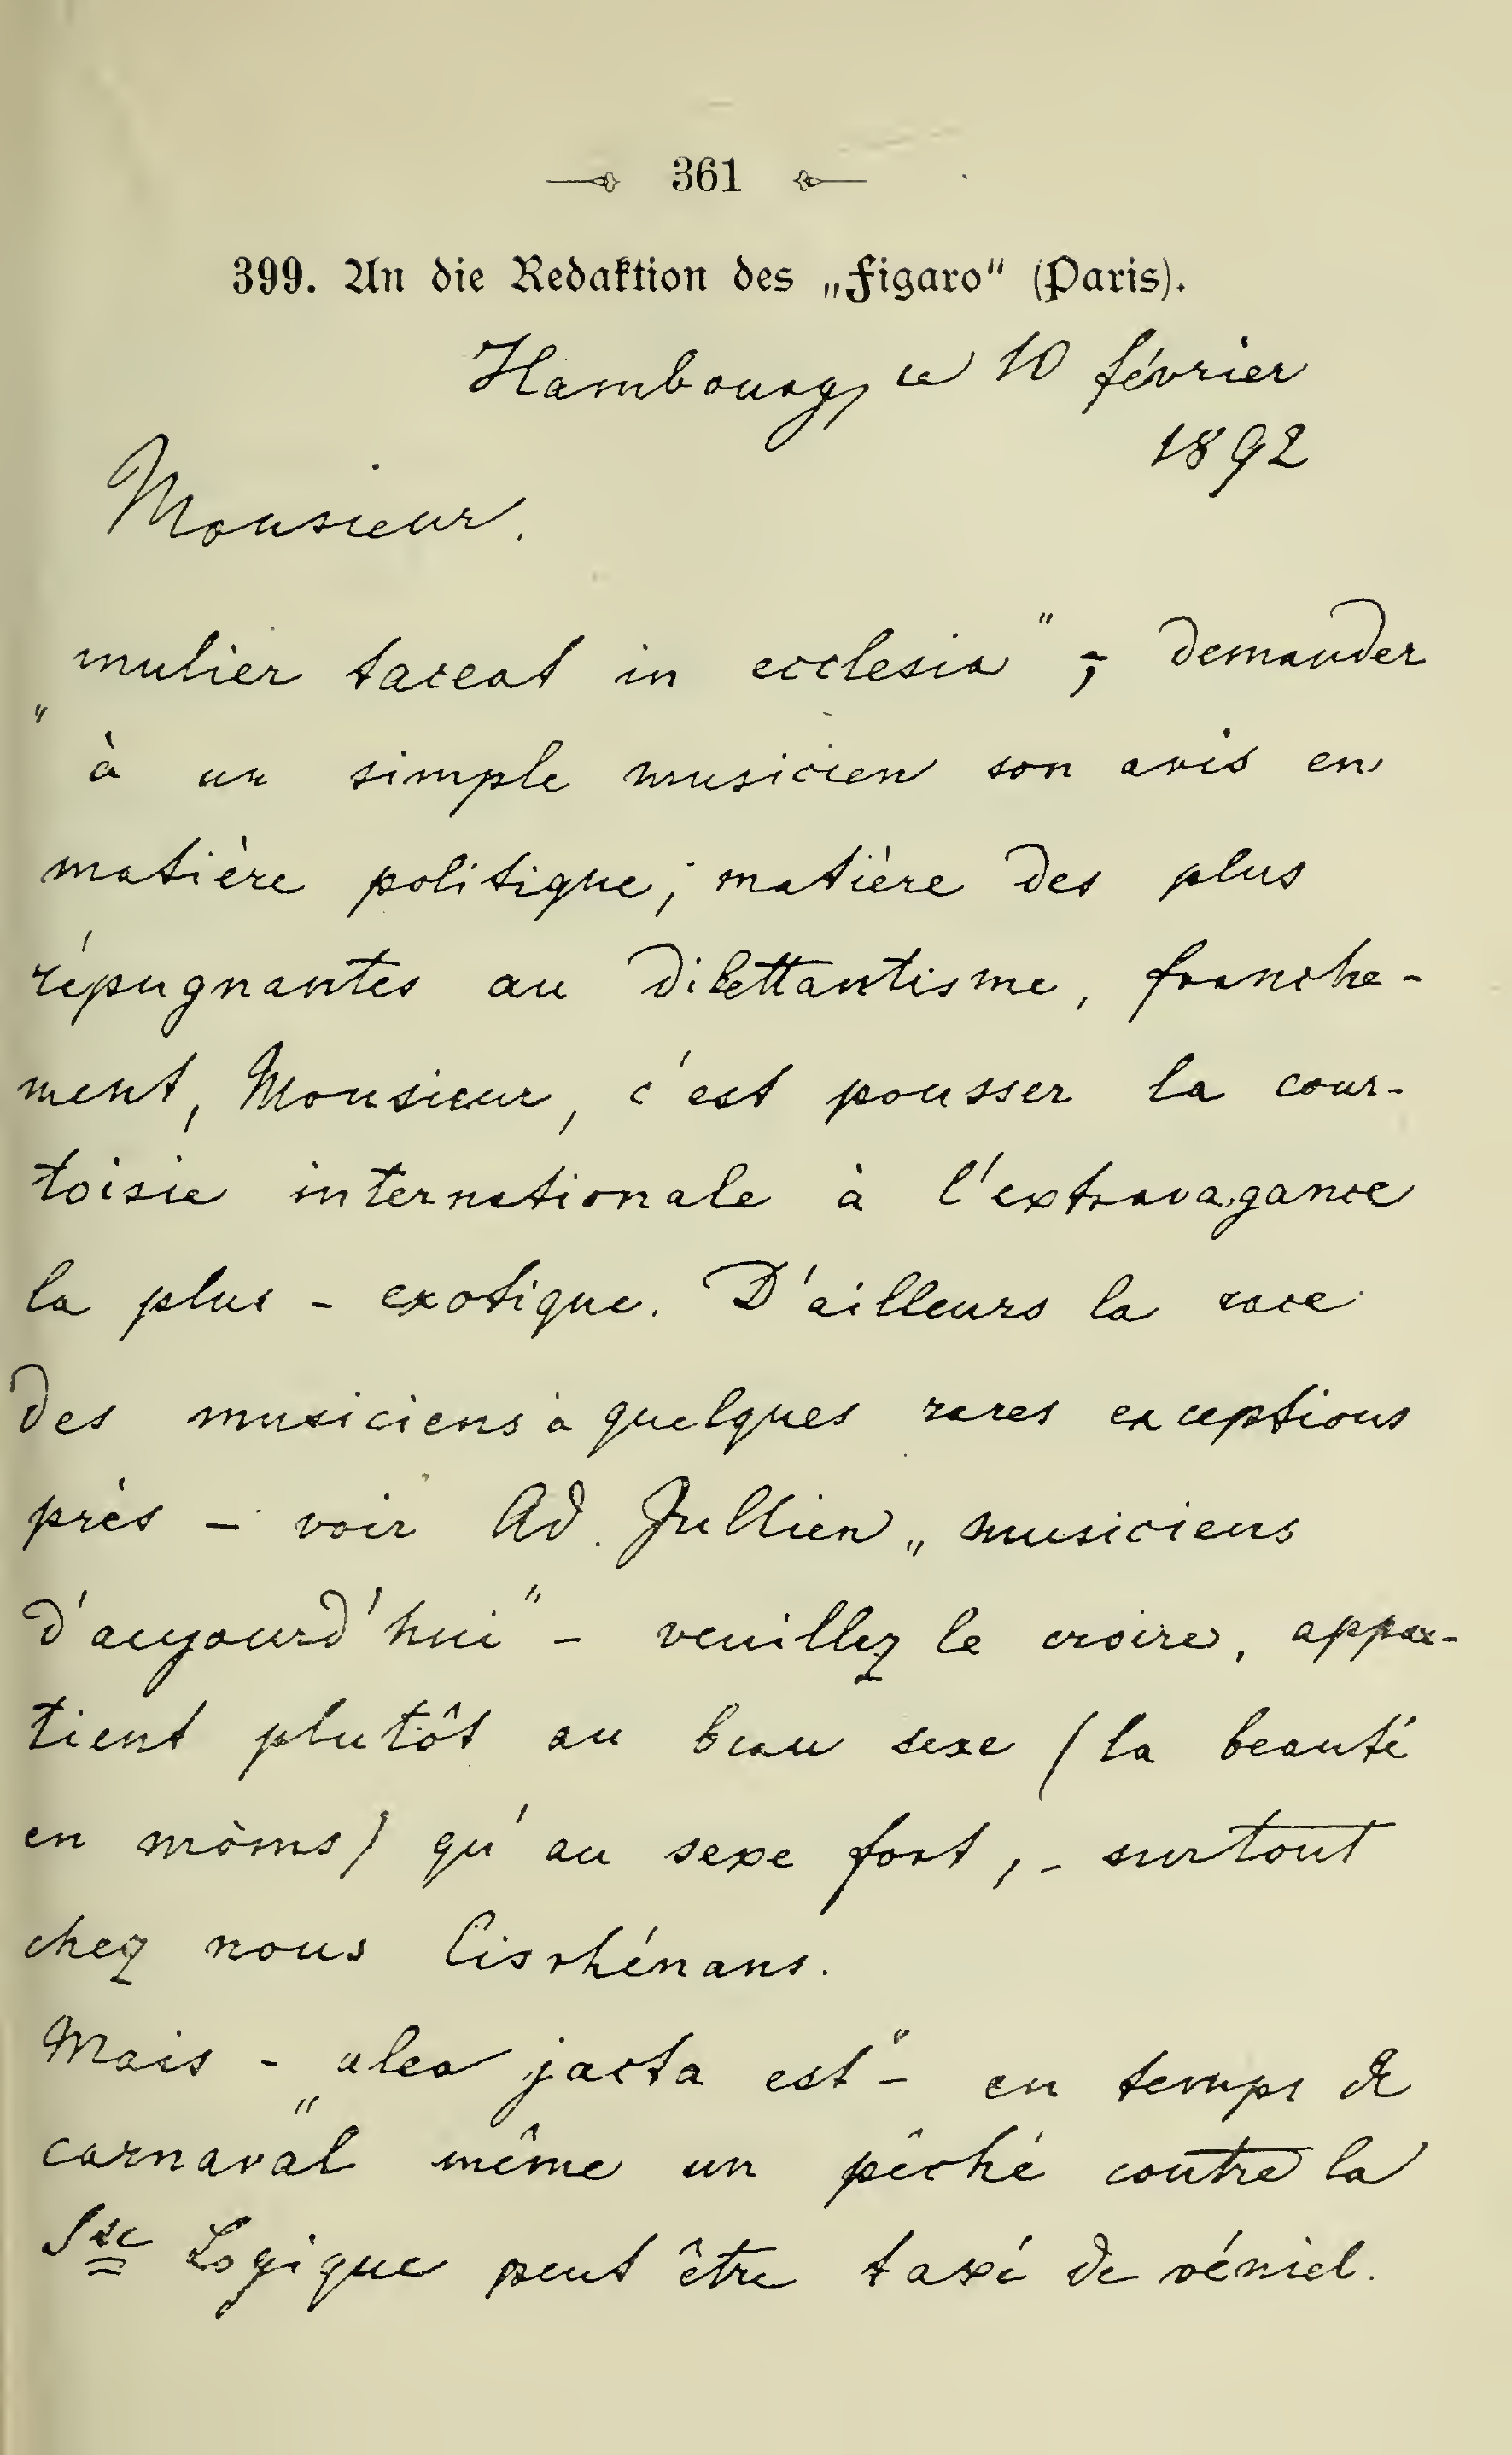 361
399. An die Redaktion des „Figaro“ (Paris).
Hambourg, ce 10 février
1892
Monsieur.
„mulier taceat in ecclesia“ ; demander
à un simple musicien son avis en
matière politique, matière des plus
répugnantes au dilettantisme, franche-
ment, Monsieur, c'est pousser la cour-
toisie internationale à l'extravagance
la plus - exotique. D'ailleurs la race
des musiciens à quelques rares exceptions
près - voir Ad. Jullien „musiciens
d'aujourd'hui“ - veuillez le croire, appar-
tient plutôt au beau sexe (la beauté
en moins) qu'au sexe fort, - surtout
chez nous Cisrhénans.
Mais - „alea jacta est“ - en temps de
carnaval même un pêché contre la
Ste Logique peut être taxé de véniel.